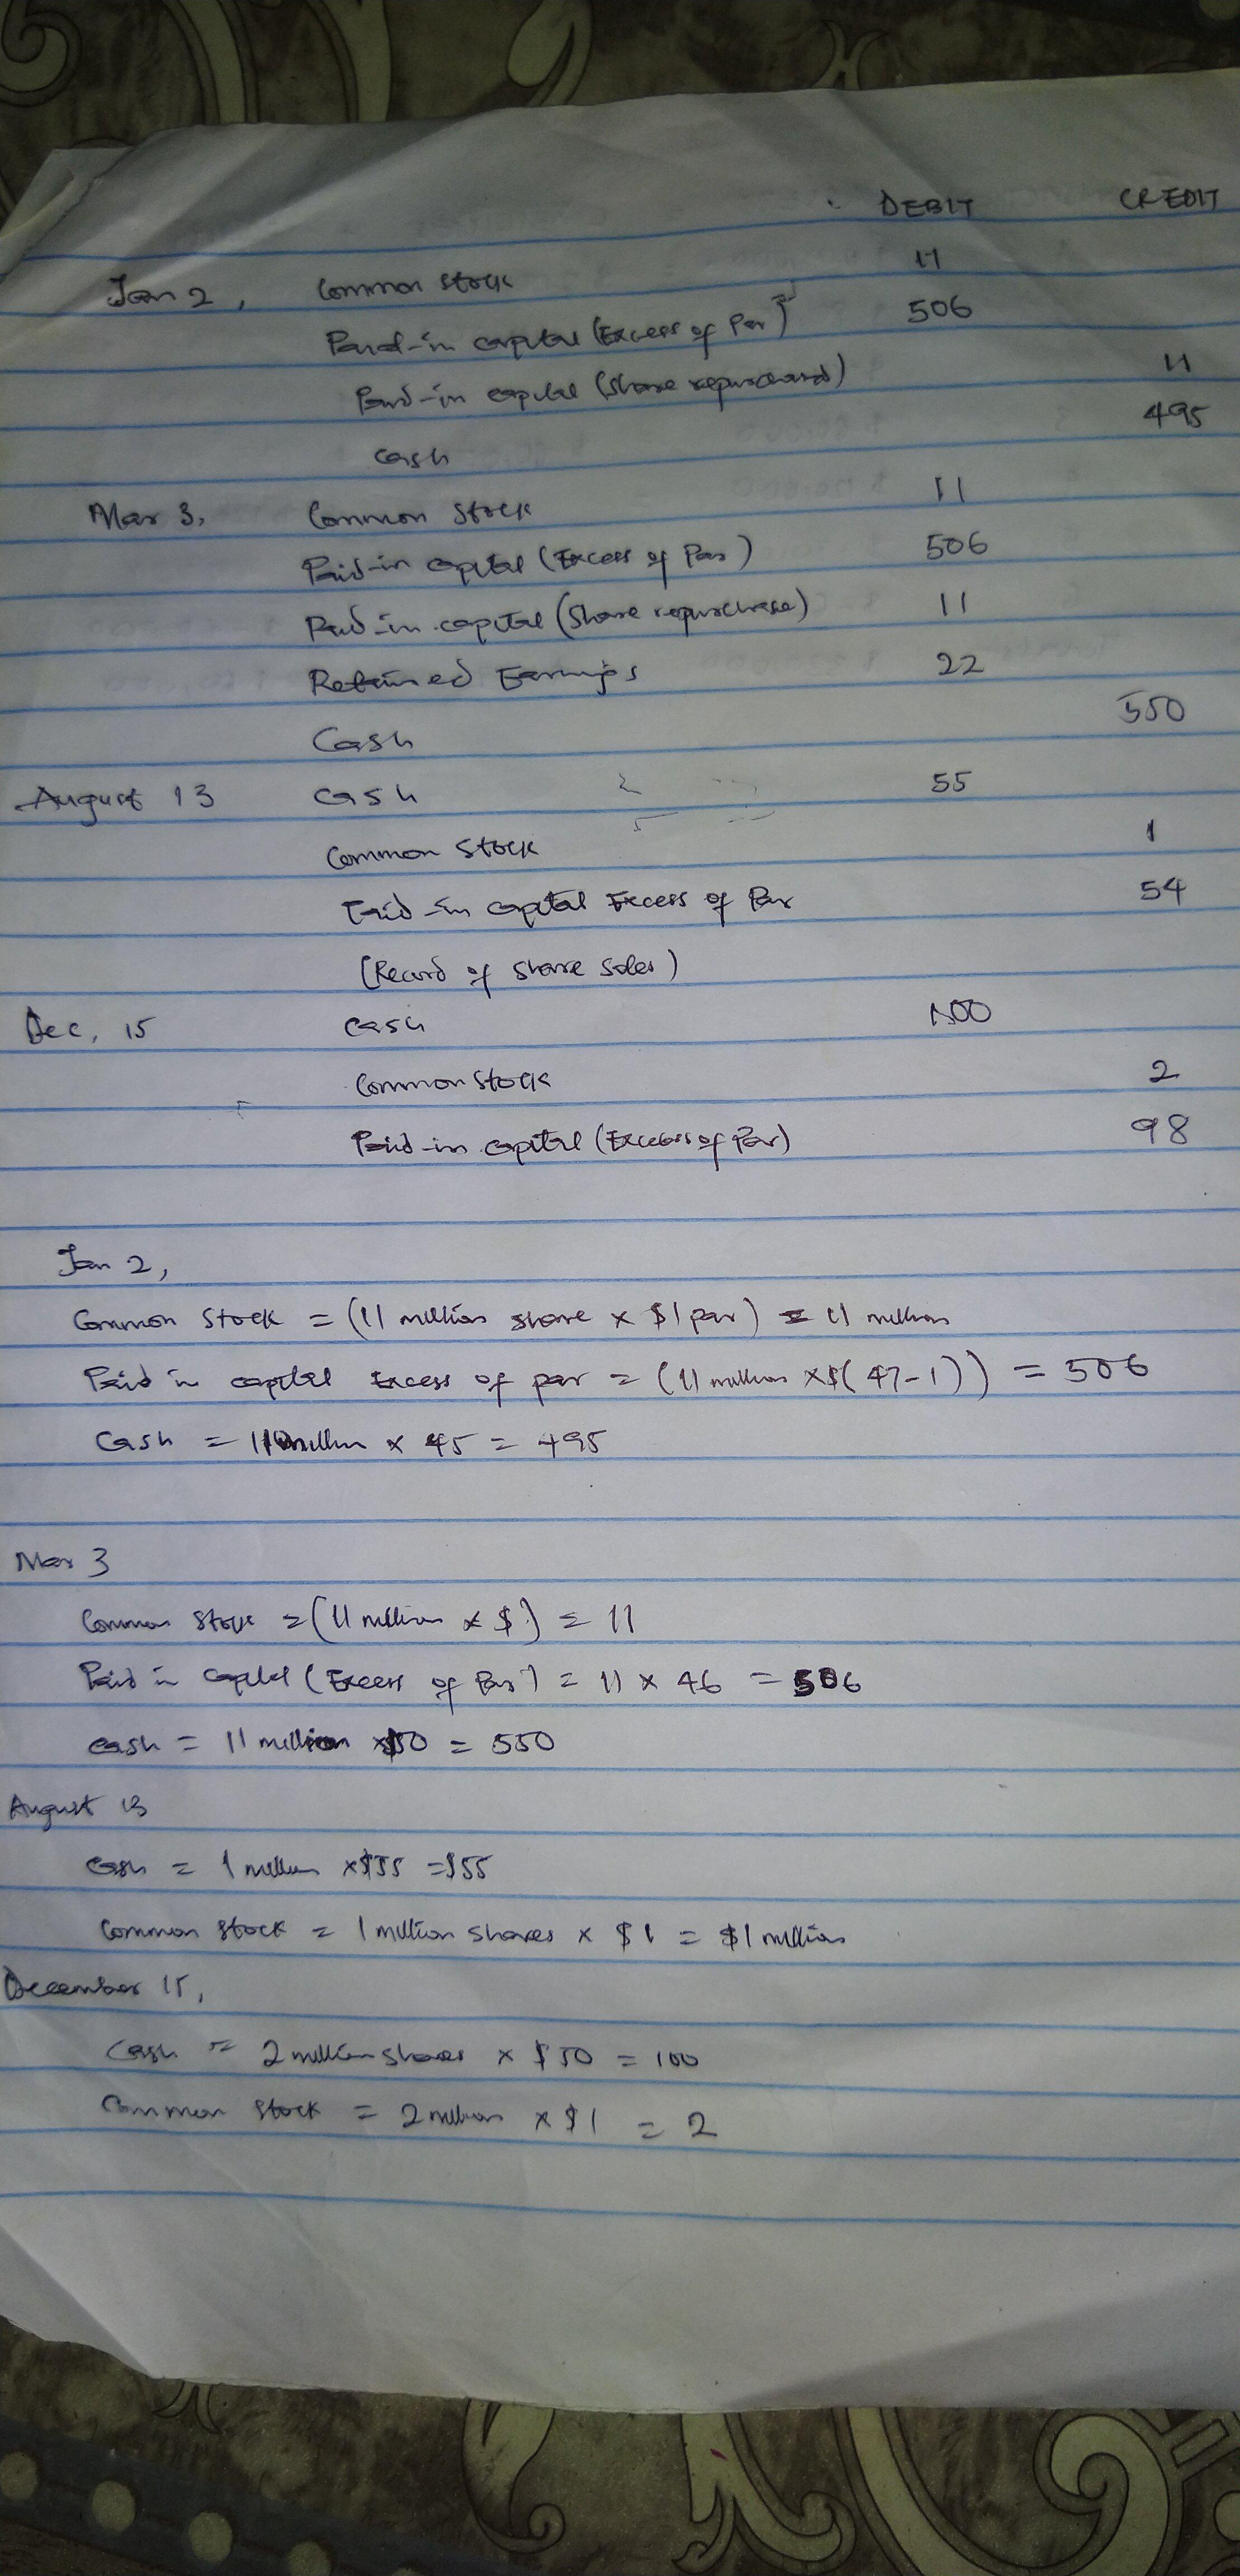 DEBIT CREDIT
Jan 2, Common stock 11
Paid-in capital (Excess of Par) 506
Paid-in capital (Share repurchased) 11
Cash 495
Mar 3, Common Stock 11
Paid-in capital (Excess of Par) 506
Paid-in capital (Share repurchase) 11
Retained Earnings 22
Cash 550
August 13 Cash 55
Common Stock 1
Paid-in capital Excess of Par 54
(Record of share sales)
Dec, 15 Cash 100
Common Stock 2
Paid-in capital (Excess of Par) 98
Jan 2,
Common Stock = (11 million share x $1 par) = 11 million
Paid in capital Excess of par = (11 million x $(47-1)) = 506
Cash = 11 million x 45 = 495
Mar 3
Common Stock = (11 million x $) = 11
Paid in capital (Excess of Par) = 11 x 46 = 506
cash = 11 million x $50 = 550
August 13
Cash = 1 million x $55 = $55
Common Stock = 1 million shares x $1 = $1 million
December 15,
Cash = 2 million shares x $50 = 100
Common Stock = 2 million x $1 = 2